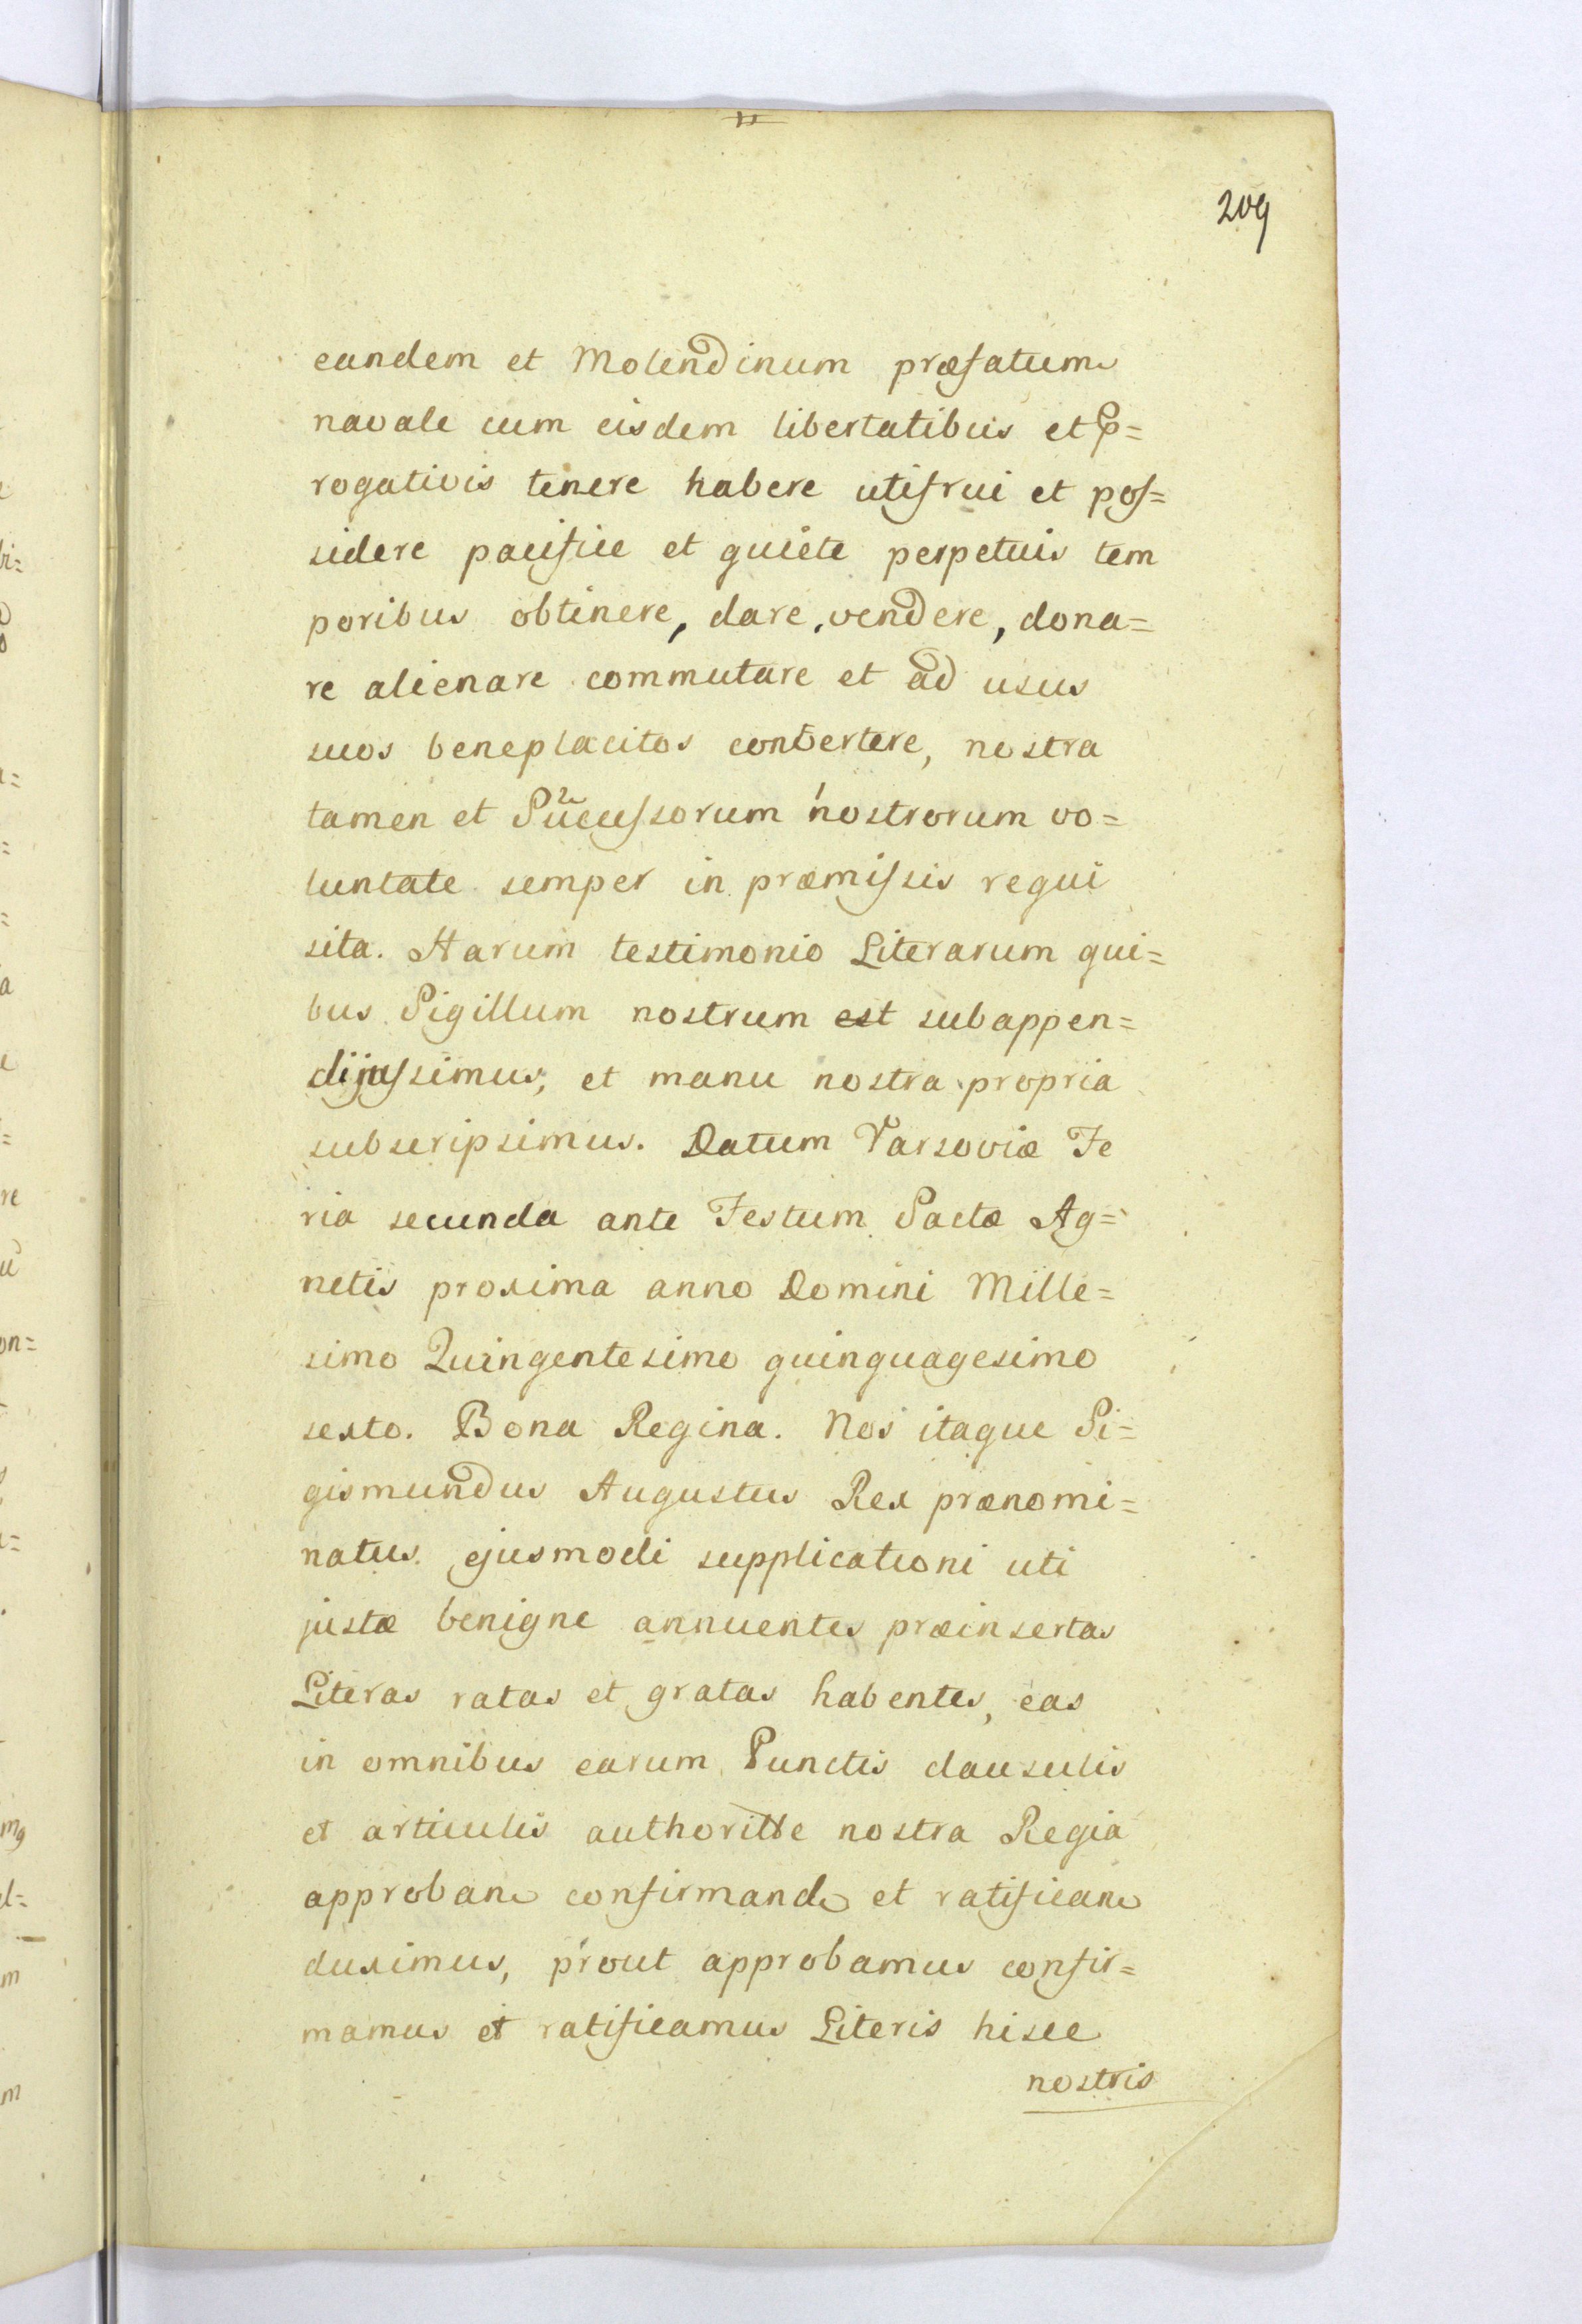 209
eandem et Molendinum præfatum
navale cum eisdem libertatibus et P=
rogativis tenere habere utifrui et pos=
sidere pacifice et quiete perpetuis tem
poribus obtinere, dare, vendere, dona=
re alienare commutare et ad usus
suos beneplacitos convertere, nostra
tamen et Successorum nostrorum vo=
luntate semper in præmissis requi
sita. Harum testimonio Literarum qui=
bus Sigillum nostrum est subappen=
subscripsimus. Datum Varsoviæ Fe
ria secunda ante Festum Sactæ Ag=
netis proxima anno Domini Mille=
simo Quingentesimo quinquagesimo
sexto. Bona Regina. Nos itaque Si=
gismundus Augustus Rex prænomi=
natus ejusmodi supplicationi uti
justæ benigne annuentes præinsertas
Literas ratas et gratas habentes, eas
in omnibus earum Punctis clausulis
et articulis authoritte nostra Regia
approban confirmand et ratifican
duximus, prout approbamus confir=
mamus et ratificamus Literis hisce
nostris